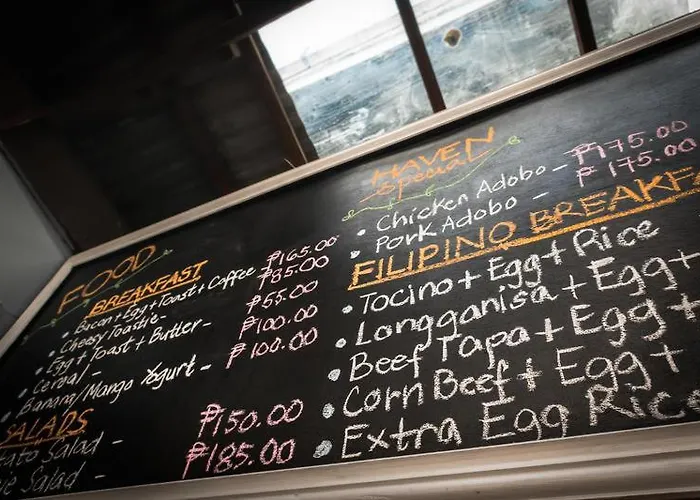 FOOD
BREAKFAST
• Bacon+Egg+Toast+Coffee - ₱165.00
• Cheesy Toastie - ₱85.00
• Egg + Toast + Butter - ₱65.00
• Cereal - ₱100.00
• Banana/Mango Yogurt - ₱100.00
SALADS
tato Salad - ₱150.00
Salad - ₱185.00
HAVEN
Special
• Chicken Adobo - ₱175.00
• Pork Adobo - ₱175.00
FILIPINO BREAKFA
• Tocino + Egg + Rice
• Longganisa + Egg +
• Beef Tapa + Egg +
• Corn Beef + Egg +
• Extra Egg Rice